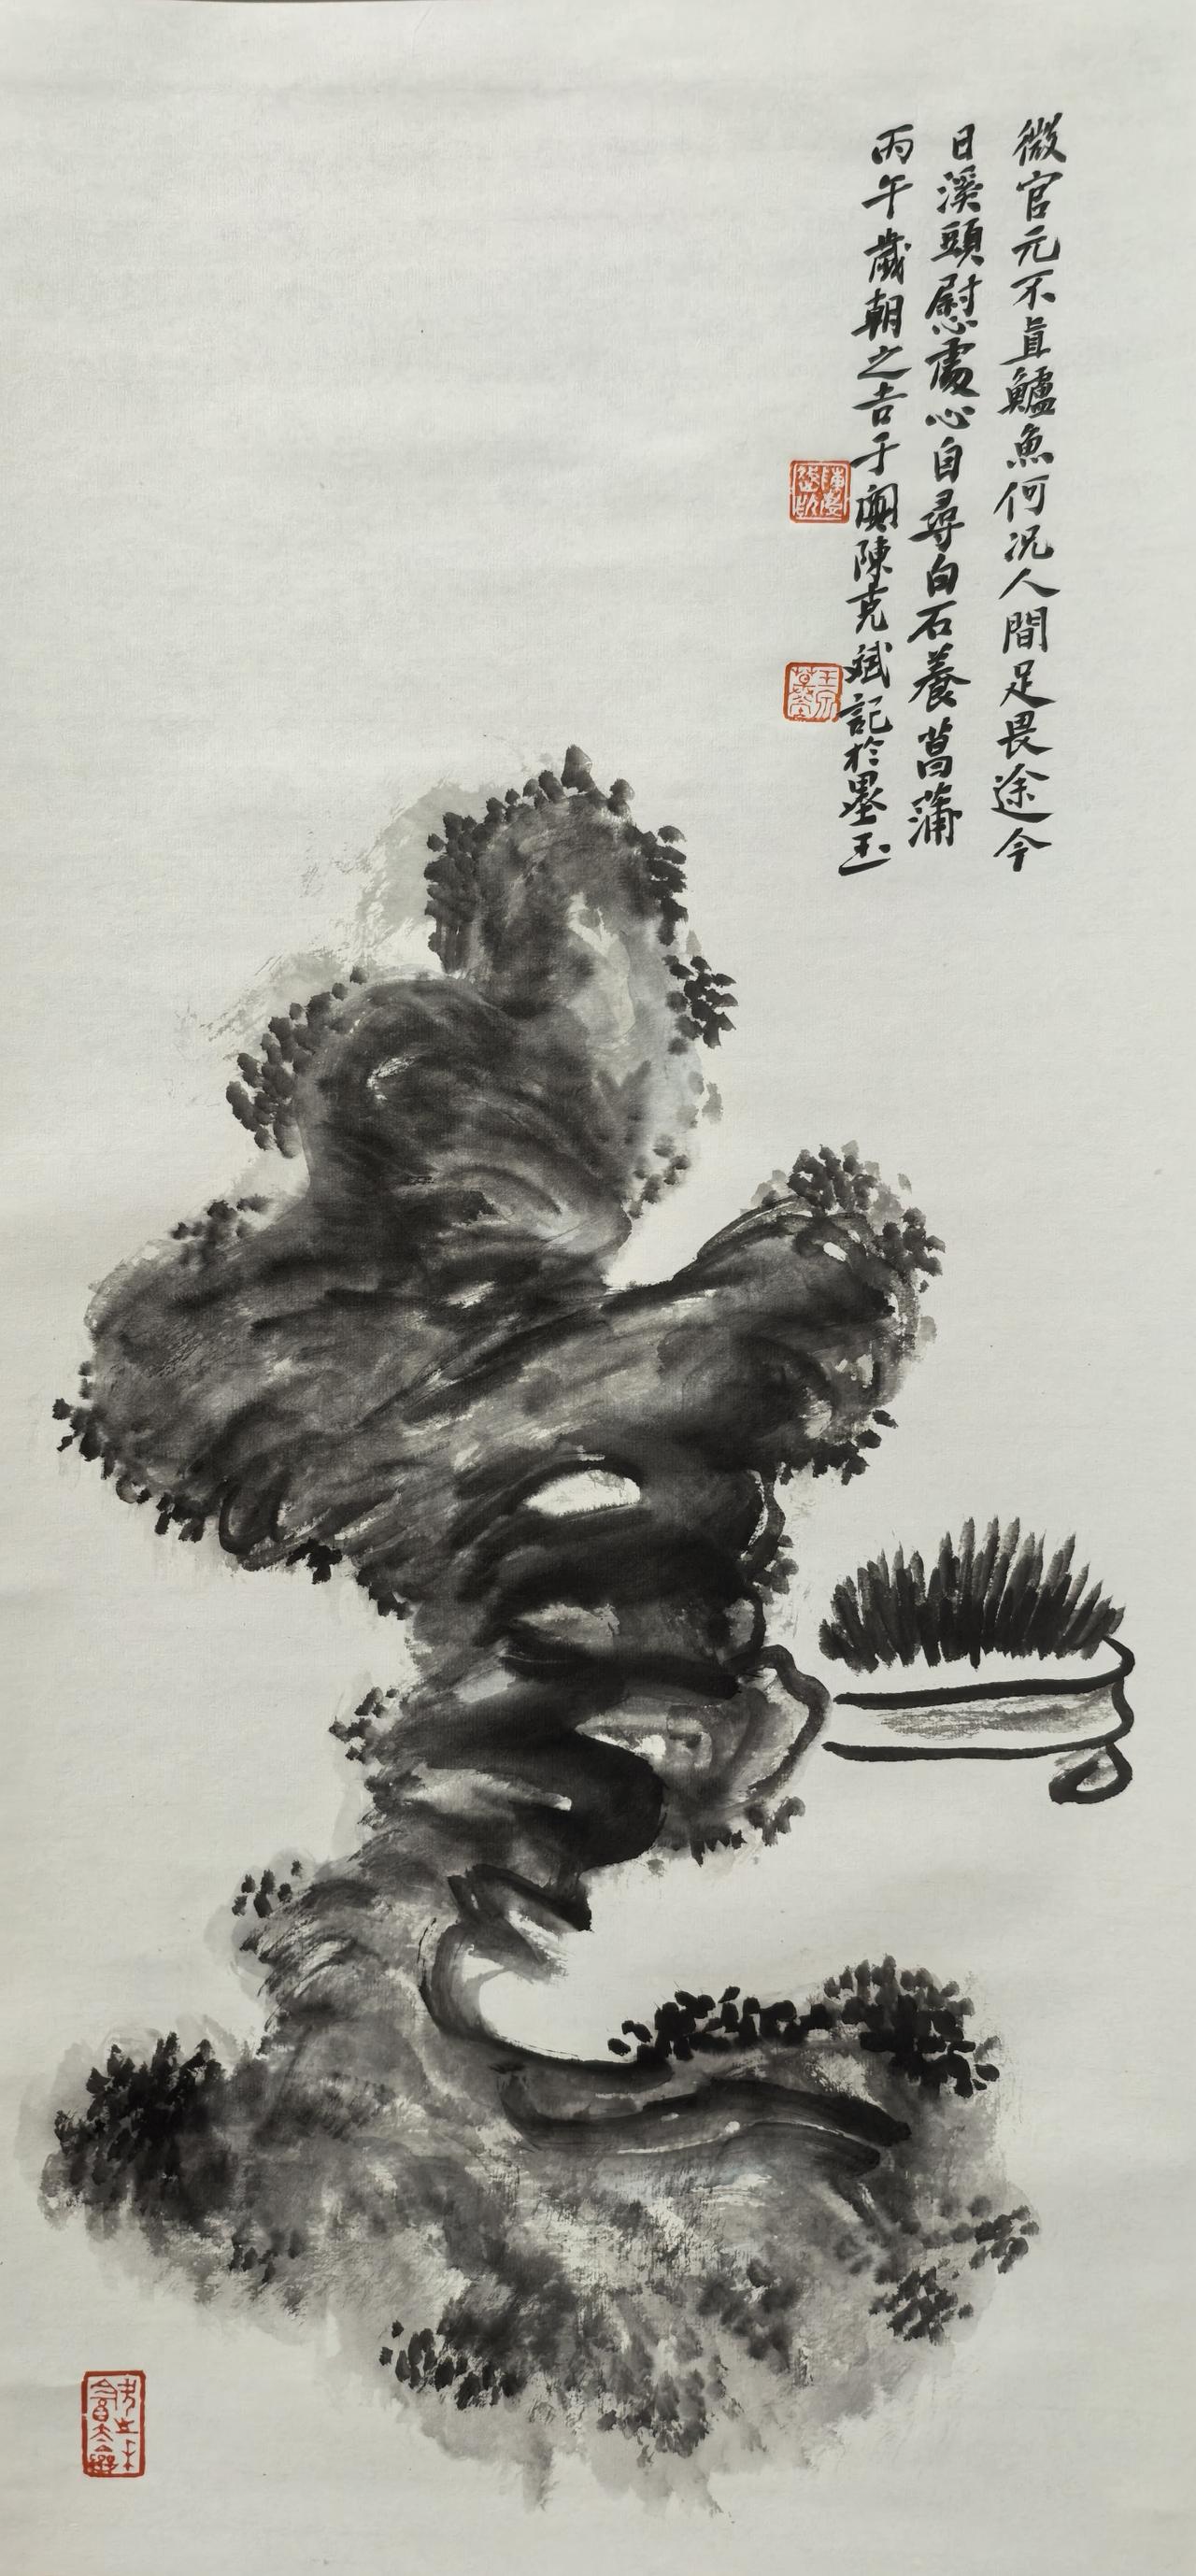 微官元不直鱸魚何況人間足畏途今
日溪頭慰處心自尋白石養菖蒲
丙午歲朝之吉于閩陳克斌記於墨玉